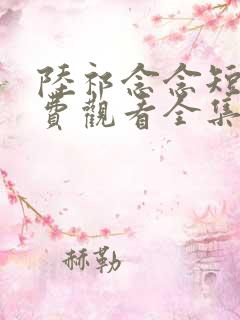 陸祁念念短
費觀看全集
赫勒